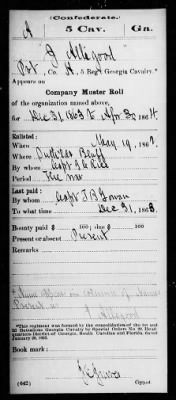 (Confederate.)
A 5 Cav. Ga.
J Alligood
Pvt, Co. A, 5 Reg't Georgia Cavalry.*
Appears on
Company Muster Roll
of the organization named above,
for Dec 31, 1863 to Apr 30, 1864.
Enlisted:
When May 19, 186
Where Bluff
By whom Capt
Period The war
Last paid:
By whom Capt J B
To what time Dec 31, 1863.
Bounty paid $ 100; due $ 100
Present or absent Present
Remarks:
Name appears in column of Names
Present as J Alligood
*This regiment was formed by the consolidation of the 1st and
2d Battalions Georgia Cavalry by Special Orders No. 20, Head-
quarters District of Georgia, South Carolina and Florida, dated
January 20, 1863.
Book mark:
(642) Copyist.